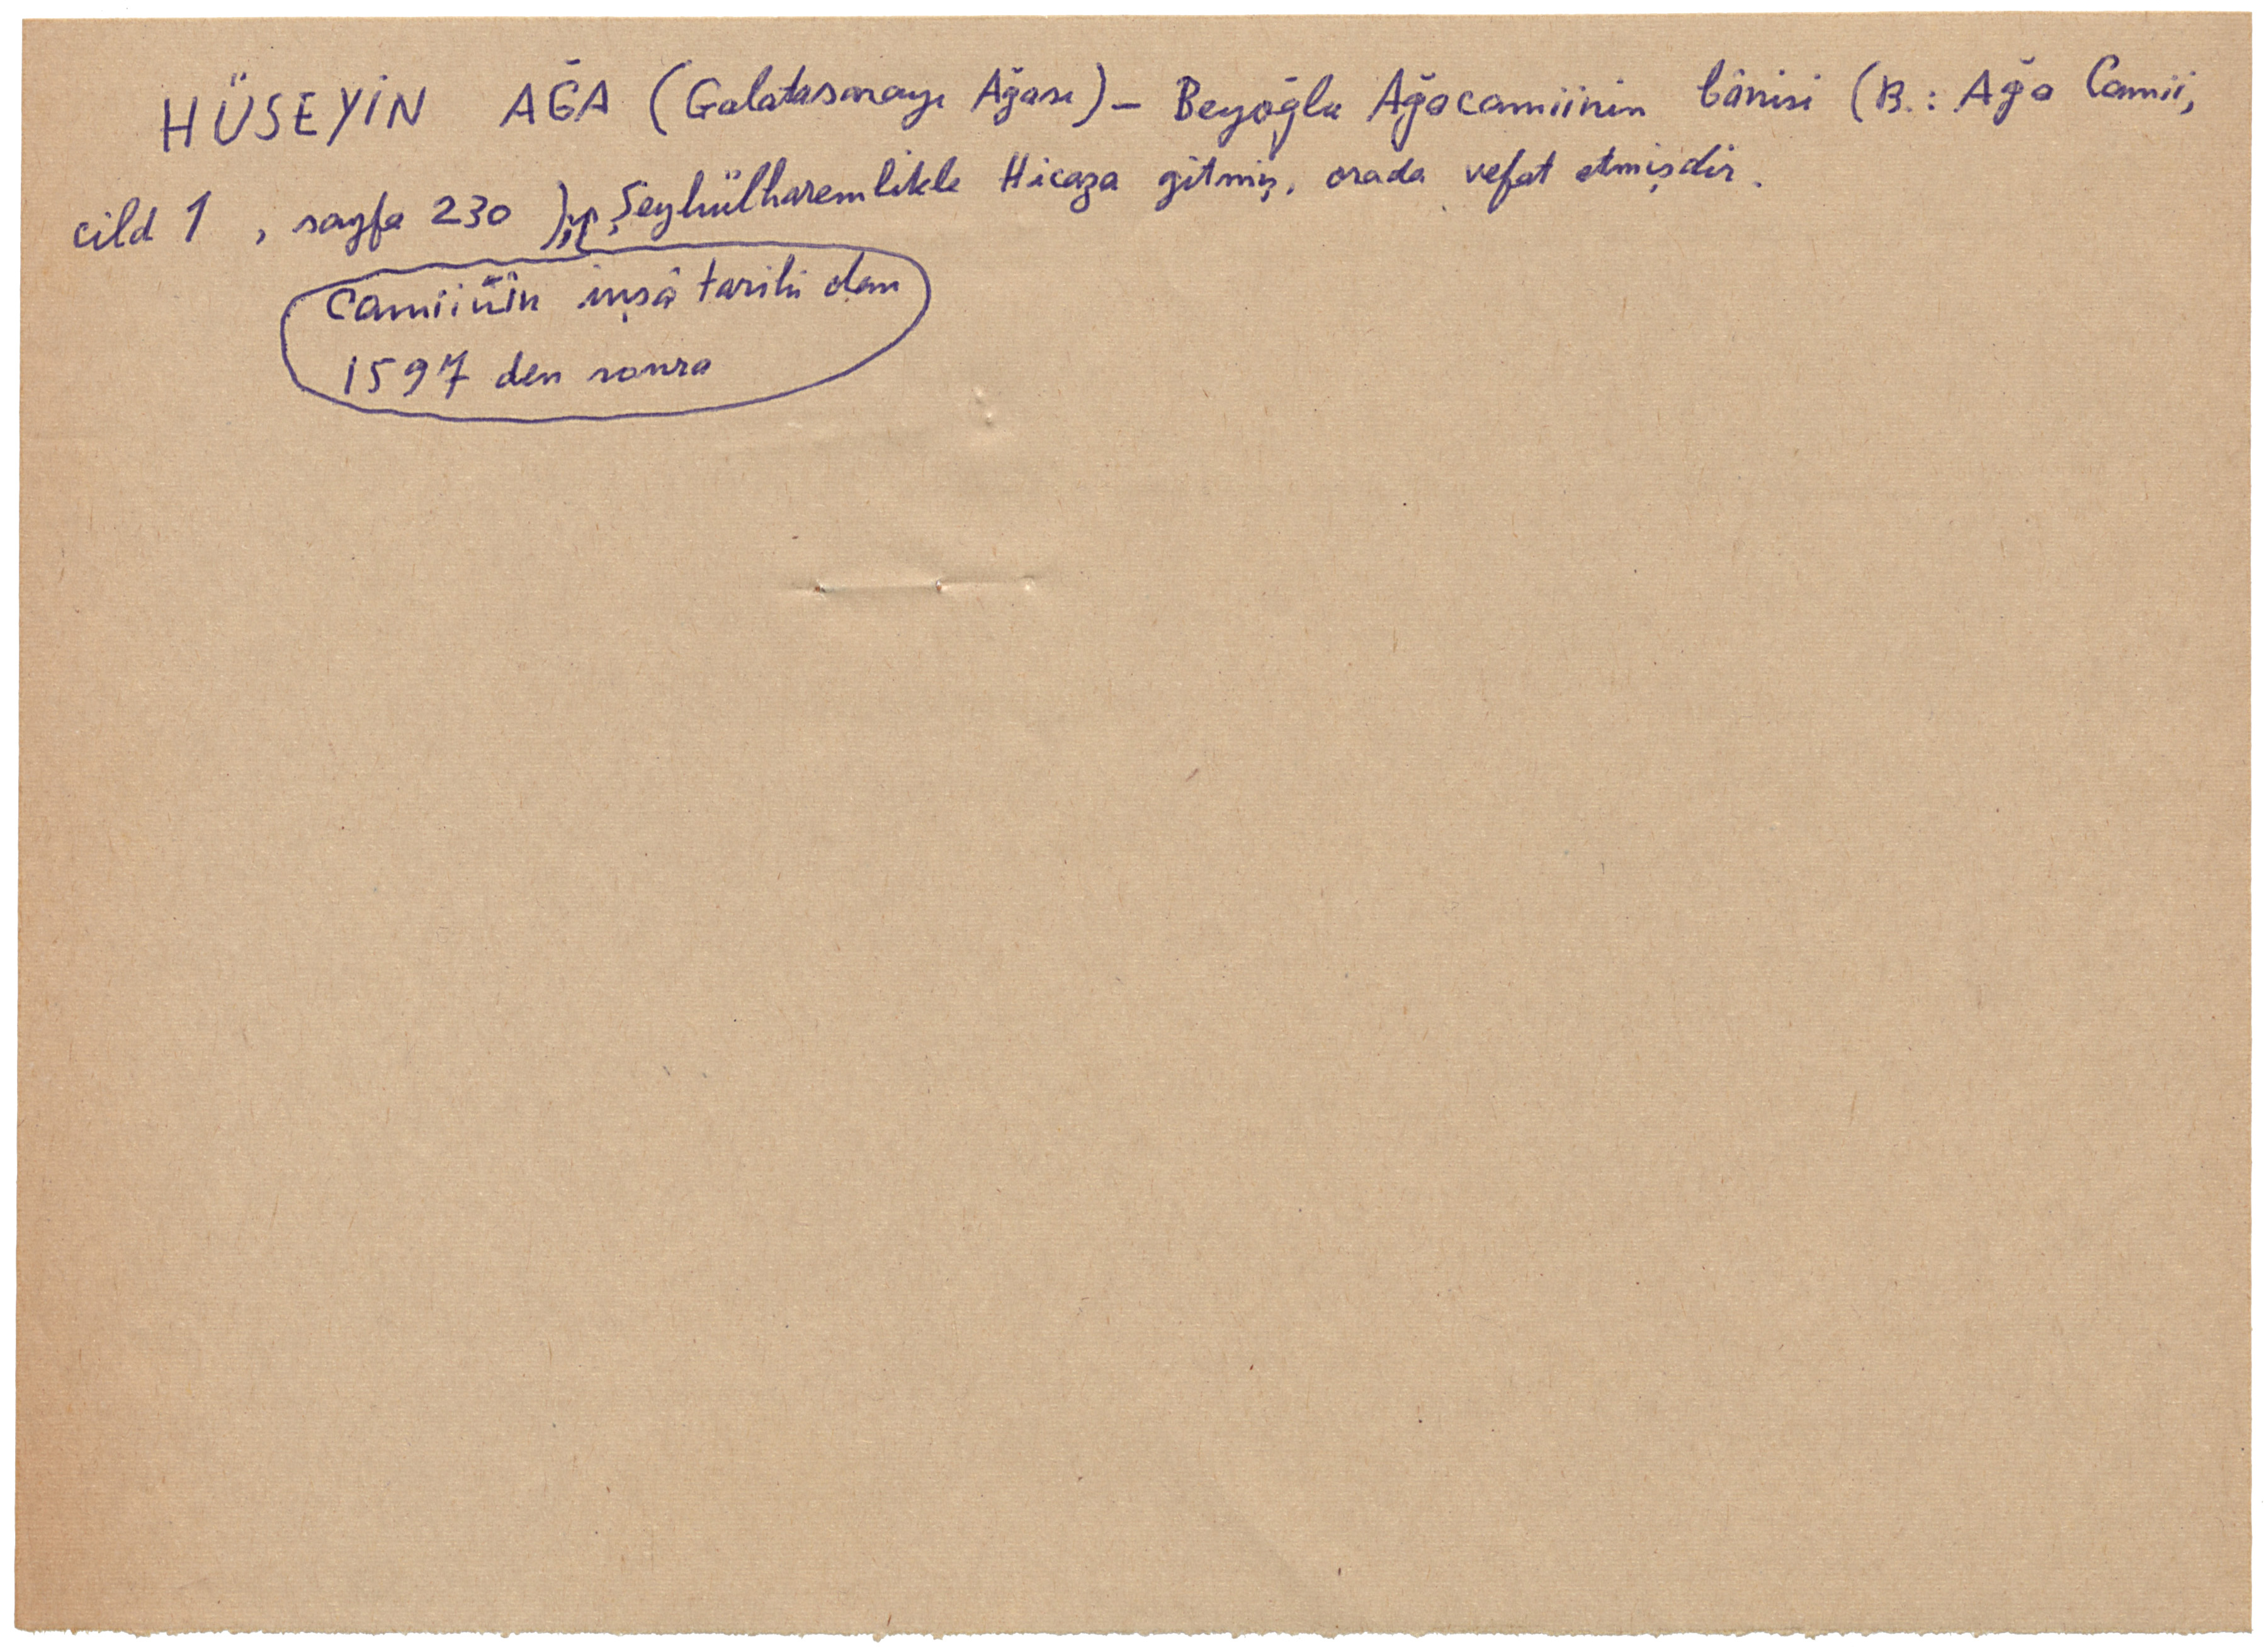 HÜSEYİN AĞA (Galatasarayı Ağası) — Beyoğlu Ağacamiinin bânisi (B.: Ağa Camii,
cild 1, sayfa 230); Şeyhülharemlikle Hicaza gitmiş, orada vefat etmişdir.
Camiinin inşâ tarihi olan
1597 den sonra